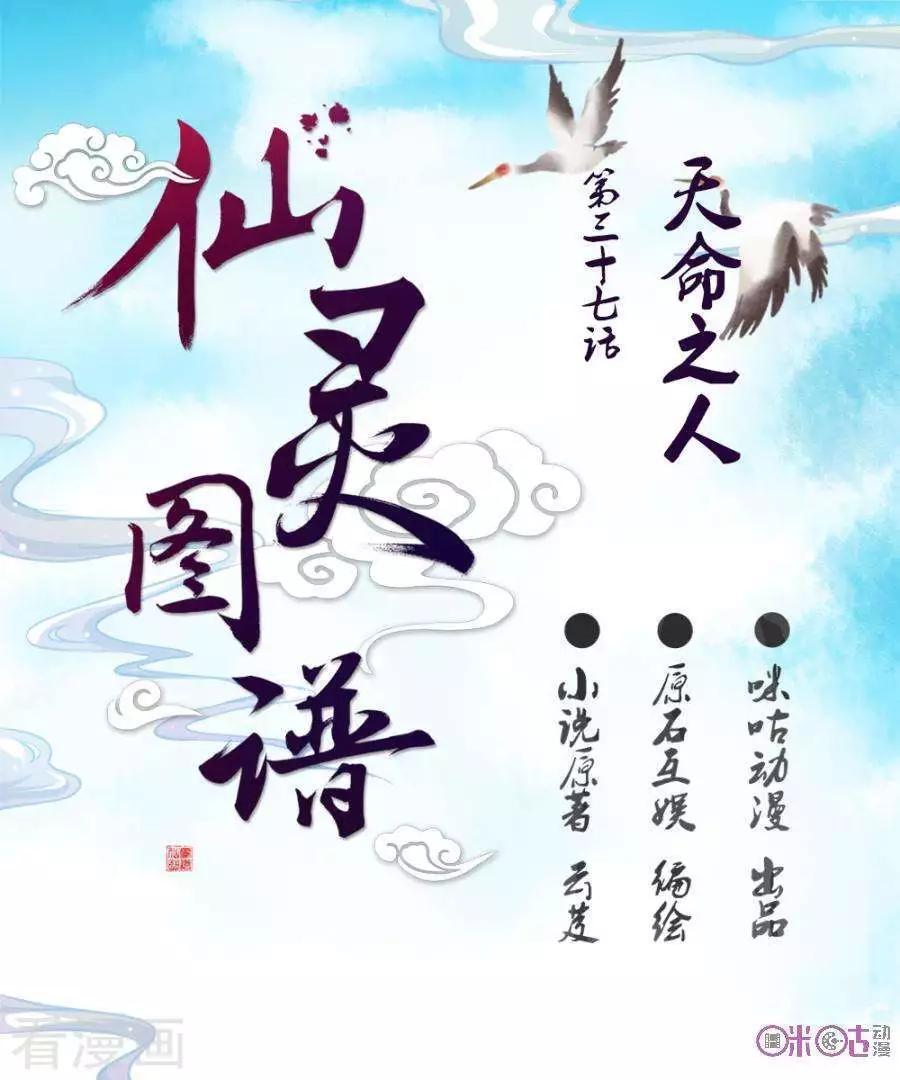 仙灵图谱
天命之人
第三十七话
咪咕动漫 出品
原石互娱 编绘
小说原著 云芨
看漫画
咪咕动漫